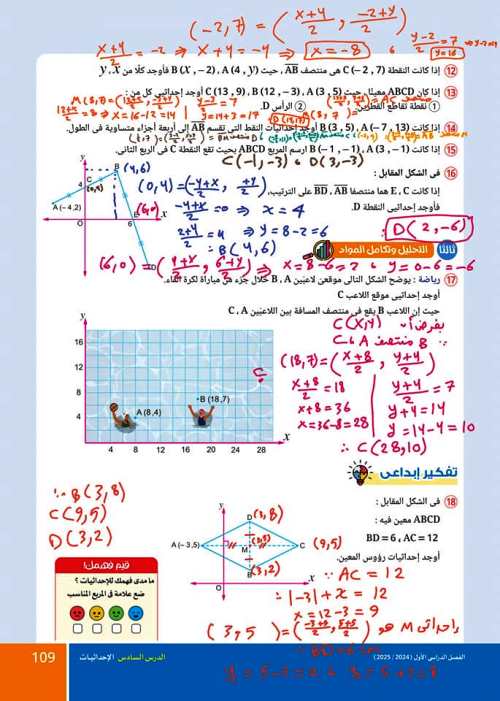 (-2,7) = (x+4/2 , -2+y/2)
x+4/2 = -2 ⇒ x+4 = -4 ⇒ x = -8 ، y-2/2 = 7
y = 16
12 إذا كانت النقطة C (-2 , 7) هى منتصف AB ، حيث A (4 , y) ، B (x , -2) فأوجد كلًا من x ، y
13 إذا كان ABCD معينًا، حيث A (3 , 5) ، B (12 , -3) ، C (13 , 9) أوجد إحداثيى كل من :
1 نقطة تقاطع القطرين. 2 الرأس D.
14 إذا كانت A (-7 , 13) ، B (3 , 5) أوجد إحداثيات النقط التى تقسم AB إلى أربعة أجزاء متساوية فى الطول.
15 إذا كانت A (3 , -1) ، B (-1 , -1) ارسم المربع ABCD بحيث تقع النقطة C فى الربع الثانى.
C(-1,-3) ، D(3,-3)
16 فى الشكل المقابل :
إذا كانت C ، E هما منتصفا AB ، BD على الترتيب،
فأوجد إحداثيى النقطة D.
y
B (4,6)
4
C
(0,4)
A (-4 , 2)
0
6
E
(6,0)
x
D
(0,4) = (-4+x/2 , 2+y/2)
-4+x/2 = 0 ⇒ x = 4
2+y/2 = 4 ⇒ y = 8-2 = 6
∴ B(4,6)
D(2,-6)
(6,0) = (4+x/2 , 6+y/2) ⇒ x = 8-6 = 2 ، y = 0-6 = -6
ثالثًا التحليل وتكامل المواد
17 رياضة : يوضح الشكل التالى موقعى لاعبَين A ، B خلال جزء من مباراة لكرة الماء.
أوجد إحداثيى موقع اللاعب C
حيث إن اللاعب B يقع فى منتصف المسافة بين اللاعبَين A ، C
بفرض أن C(x,y)
∵ B منتصف A ، C
(18,7) = (x+8/2 , y+4/2)
x+8/2 = 18
x+8 = 36
x = 36-8 = 28
y+4/2 = 7
y+4 = 14
y = 14-4 = 10
∴ C(28,10)
y
16
12
8
4
C
B (18,7)
A (8,4)
4 8 12 16 20 24 28 x
تفكير إبداعى
18 فى الشكل المقابل :
ABCD معين فيه :
AC = 12 ، BD = 6
أوجد إحداثيات رؤوس المعين.
∵ B(3,8)
C(9,5)
D(3,2)
y
D (3,8)
A (-3 , 5)
M
C (9,5)
B (3,2)
0
x
∵ AC = 12
∴ |-3| + x = 12
x = 12-3 = 9
إحداثى M هو (-3+9/2 , 5+5/2) = (3,5)
قيّم فهمك!
ما مدى فهمك للإحداثيات ؟
ضع علامة فى المربع المناسب
109 الدرس السادس الإحداثيات
الفصل الدراسى الأول (2024 / 2025)